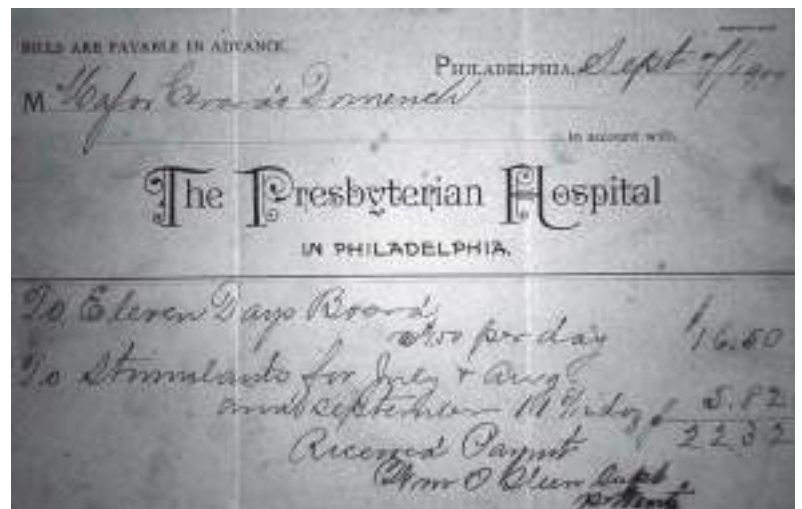 BILLS ARE PAYABLE IN ADVANCE.
PHILADELPHIA, Sept
M Domenech
in account with
The Presbyterian Hospital
IN PHILADELPHIA.
To Eleven Days Board
per day $16.50
To Stimulants for July & Aug.
and September 5.82
Received Paymt 2232
Wm O Supt